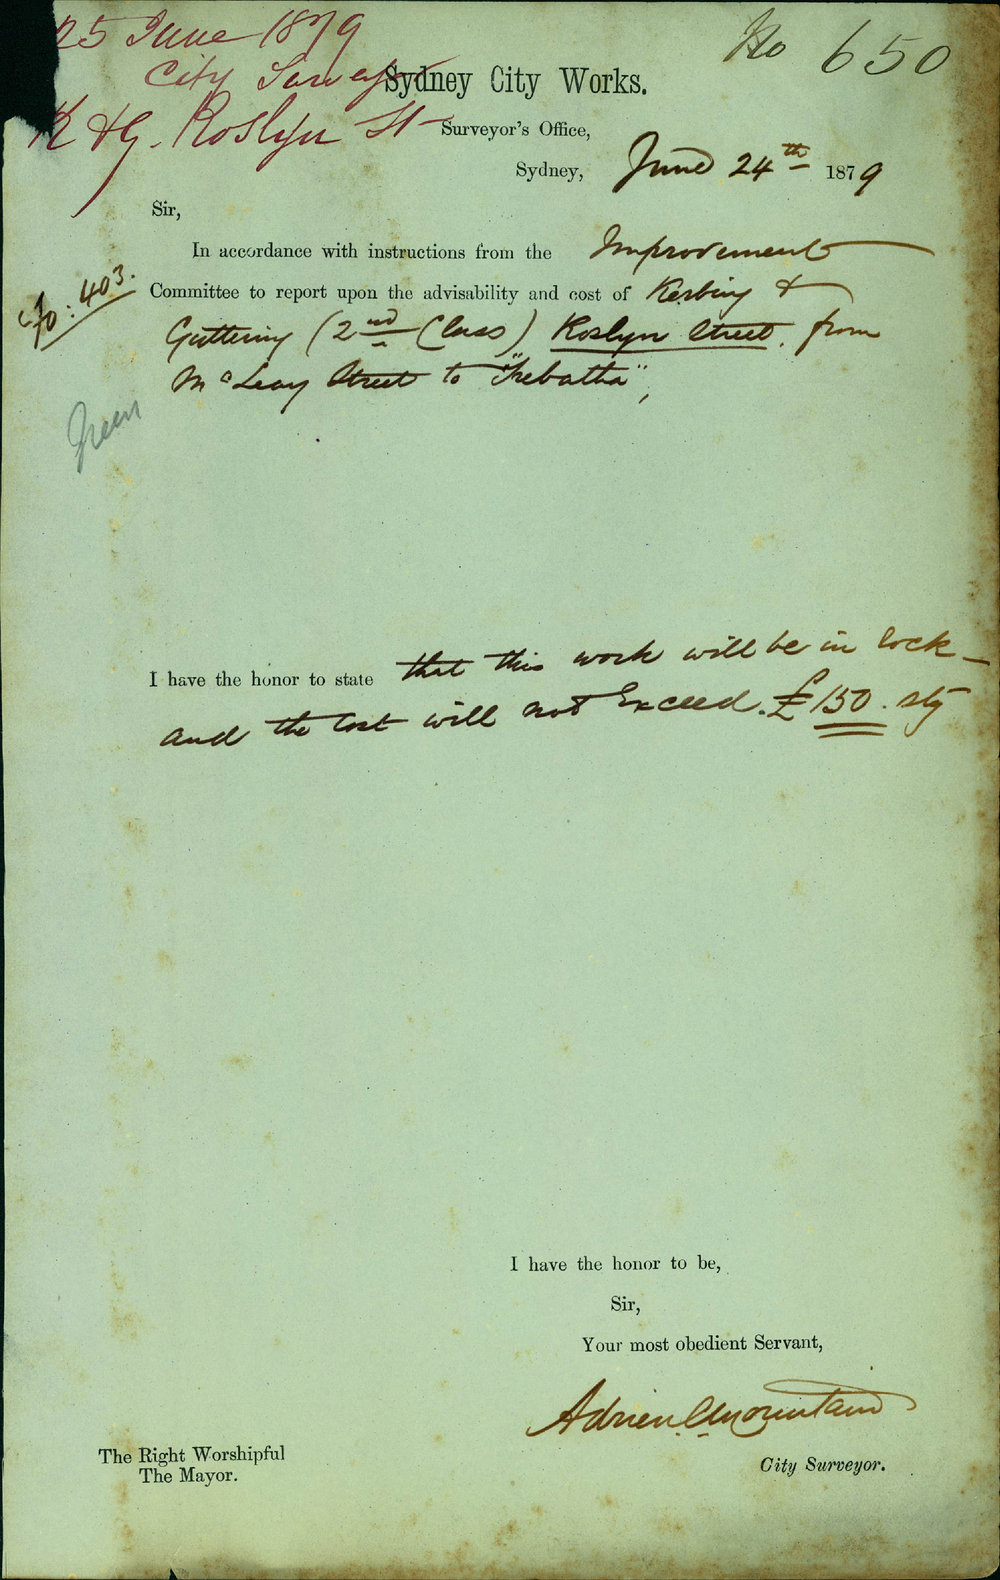 25 June 1879
No 650
City Survey
Sydney City Works.
K & G. Roslyn St
Surveyor's Office,
Sydney, June 24th 1879
Sir,
In accordance with instructions from the Improvement
Fo: 403.
Committee to report upon the advisability and cost of Kerbing &
Guttering (2nd Class) Roslyn Street, from
McLeay Street to "Trebatha",
Green
I have the honor to state that this work will be in lock-
and the cost will not exceed £150. stg
I have the honor to be,
Sir,
Your most obedient Servant,
Adrien C Mountain
City Surveyor.
The Right Worshipful
The Mayor.